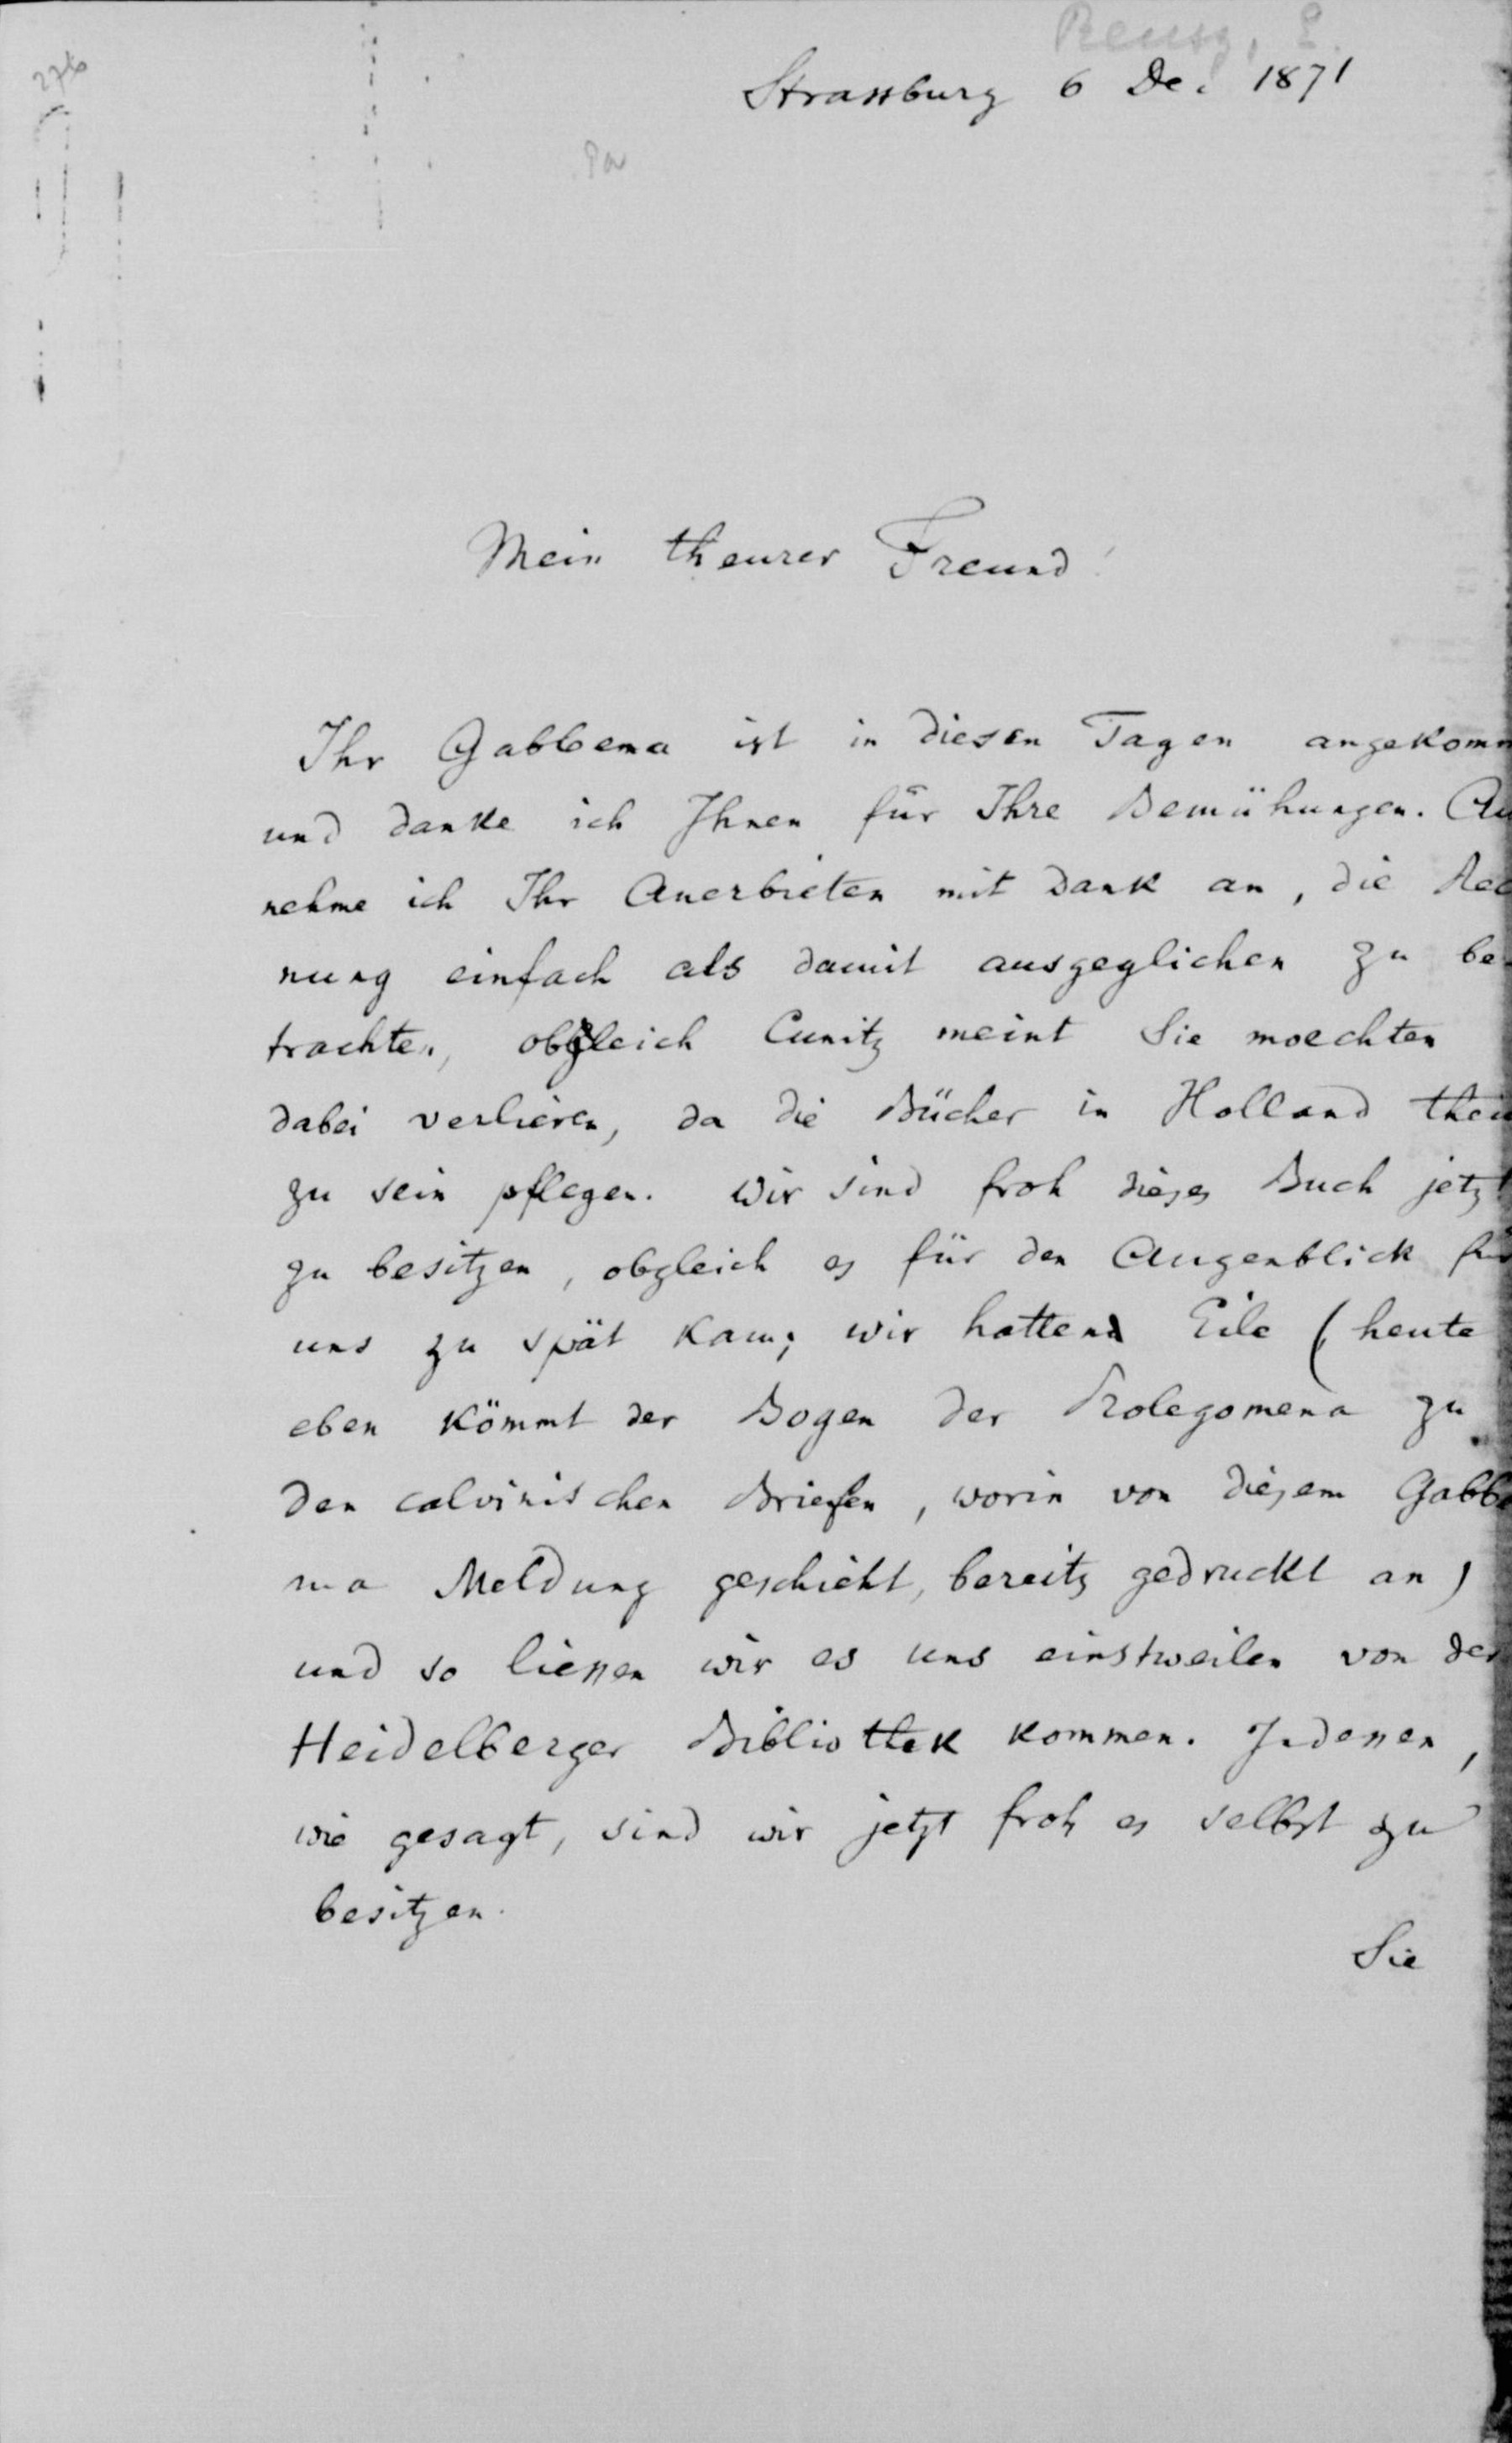 Reuss, E.
276
Strassburg 6 Dec 1871
Mein theurer Freund!
Ihr Gabbema ist in diesen Tagen angekomm
und danke ich Ihnen für Ihre Bemühungen. Au
nehme ich Ihr Anerbieten mit Dank an, die Rec
nung einfach als damit ausgeglichen zu be-
trachten, obgleich Cunitz meint Sie moechten
dabei verlieren, da die Bücher in Holland theu
zu sein pflegen. Wir sind froh dieses Buch jetzt
zu besitzen, obgleich es für den Augenblick für
uns zu spät kam; wir hatten Eile (heute
eben kömmt der Bogen der Prolegomena zu
den calvinischen Briefen, worin von diesem Gabbe
ma Meldung geschieht, bereits gedruckt an)
und so liessen wir es uns einstweilen von der
Heidelberger Bibliothek kommen. Indessen,
wie gesagt, sind wir jetzt froh es selbst zu
besitzen.
Sie